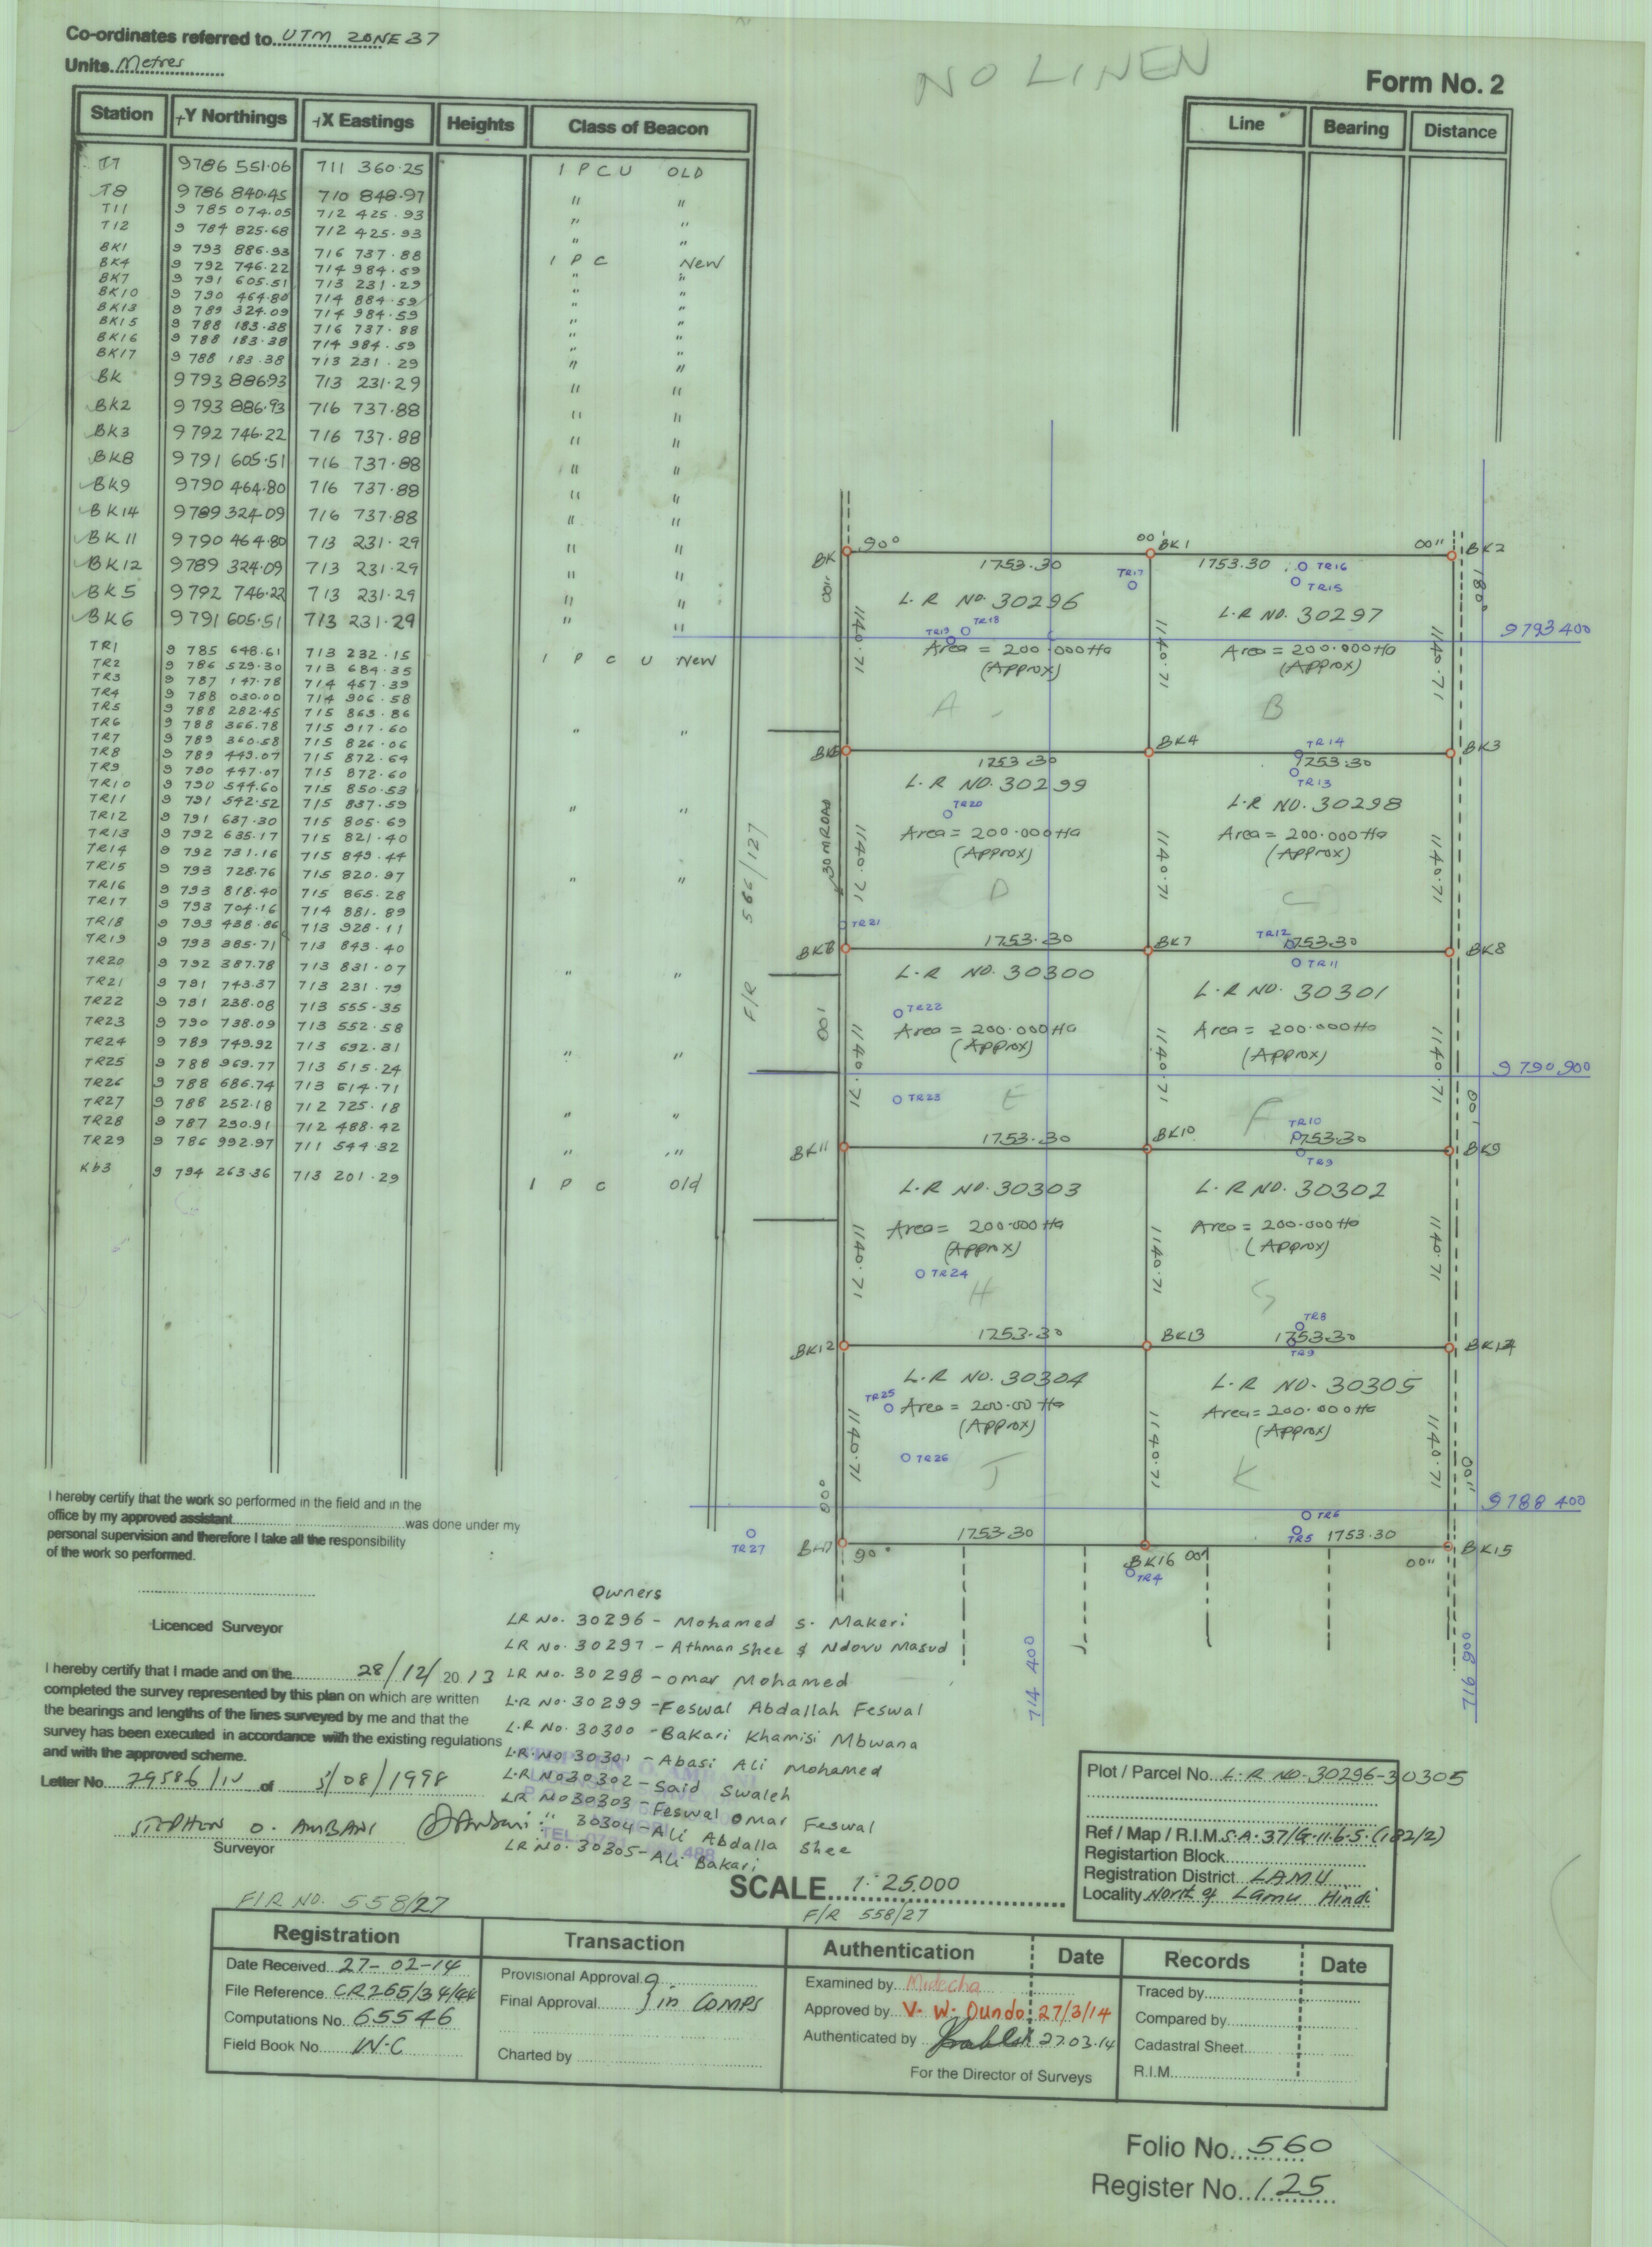 Co-ordinates referred to UTM ZONE 37
Units Metres
NO LINEN
Form No. 2
Station +Y Northings +X Eastings Heights Class of Beacon
T7 9786 551.06 711 360.25 I P C U OLD
T8 9786 840.45 710 848.97 " "
T11 9 785 074.05 712 425.93 " "
T12 9 784 825.68 712 425.93 " "
BK1 9 793 886.93 716 737.88 I P C New
BK4 9 792 746.22 714 984.59 " "
BK7 9 791 605.51 713 231.29 " "
BK10 9 790 464.80 714 884.59 " "
BK13 9 789 324.09 714 984.59 " "
BK15 9 788 183.38 716 737.88 " "
BK16 9 788 183.38 714 984.59 " "
BK17 9 788 183.38 713 231.29 " "
BK 9793 88693 713 231.29 " "
BK2 9 793 886.93 716 737.88 " "
BK3 9 792 746.22 716 737.88 " "
BK8 9791 605.51 716 737.88 " "
BK9 9790 464.80 716 737.88 " "
BK14 9789 324.09 716 737.88 " "
BK11 9790 464.80 713 231.29 " "
BK12 9789 324.09 713 231.29 " "
BK5 9792 746.22 713 231.29 " "
BK6 9791 605.51 713 231.29 " "
TR1 9 785 648.61 713 232.15 I P C U New
TR2 9 786 529.30 713 684.35
TR3 9 787 147.78 714 457.39
TR4 9 788 030.00 714 906.58
TR5 9 788 282.45 715 863.86
TR6 9 788 366.78 715 917.60 " "
TR7 9 789 360.58 715 826.06
TR8 9 789 449.07 715 872.64
TR9 9 790 447.07 715 872.60
TR10 9 790 544.60 715 850.53
TR11 9 791 542.52 715 837.59 " "
TR12 9 791 637.30 715 805.69
TR13 9 792 635.17 715 821.40
TR14 9 792 731.16 715 849.44
TR15 9 793 728.76 715 820.97 " "
TR16 9 793 818.40 715 865.28
TR17 9 793 704.16 714 881.89
TR18 9 793 438.86 713 928.11
TR19 9 793 385.71 713 843.40
TR20 9 792 387.78 713 831.07 " "
TR21 9 791 743.37 713 231.79
TR22 9 791 238.08 713 555.35
TR23 9 790 738.09 713 552.58
TR24 9 789 749.92 713 692.31 " "
TR25 9 788 969.77 713 515.24
TR26 9 788 686.74 713 614.71
TR27 9 788 252.18 712 725.18 " "
TR28 9 787 290.91 712 488.42
TR29 9 786 992.97 711 544.32 " "
Kb3 9 794 263.36 713 201.29 I P C Old
Line Bearing Distance
F/R 566/127
BK 90° 00' BK1 00" BK2
1753.30 1753.30 TR16
TR17 TR15
00" 1140.71 1140.71 1140.71 180°
L.R NO. 30296 L.R NO. 30297
TR19 TR18 9793 400
Area = 200.000Ha Area = 200.000Ha
(Approx) (Approx)
A B
BK5 BK4 TR14 BK3
1753.30 1753.30
TR13
L.R NO. 30299 L.R NO. 30298
TR20
Area = 200.000Ha Area = 200.000Ha
(Approx) (Approx)
30MROAD 1140.71 1140.71 1140.71
D C
TR21
BK6 1753.30 BK7 TR12 1753.30 BK8
TR11
L.R NO. 30300 L.R NO. 30301
TR22
Area = 200.000Ha Area = 200.000Ha
(Approx) (Approx)
00' 1140.71 1140.71 1140.71 00'
9 790,900
TR23 E F
TR10
BK11 1753.30 BK10 1753.30 BK9
TR9
L.R NO. 30303 L.R NO. 30302
Area = 200.000Ha Area = 200.000Ha
(Approx) (Approx)
1140.71 1140.71 1140.71
TR24 H G
TR8
BK12 1753.30 BK13 1753.30 BK14
TR9
L.R NO. 30304 L.R NO. 30305
TR25
Area = 200.00 Ha Area = 200.000Ha
(Approx) (Approx)
1140.71 1140.71 1140.71 00"
TR26 J K
00° 9788 400
TR6
TR27 BK17 90° 1753.30 BK16 00' TR5 1753.30 00" BK15
TR4
714 400 716 900
I hereby certify that the work so performed in the field and in the
office by my approved assistant was done under my
personal supervision and therefore I take all the responsibility
of the work so performed.
Licenced Surveyor
I hereby certify that I made and on the 28/12/ 2013
completed the survey represented by this plan on which are written
the bearings and lengths of the lines surveyed by me and that the
survey has been executed in accordance with the existing regulations
and with the approved scheme.
Letter No. 79586/IV of 5/08/1998
STEPHEN O. AMBANI
Surveyor
Owners
LR No. 30296 - Mohamed S. Makeri
LR No. 30297 - Athman Shee & Ndovu Masud
LR No. 30298 - Omar Mohamed
L.R No. 30299 - Feswal Abdallah Feswal
L.R No. 30300 - Bakari Khamisi Mbwana
L.R. No 30301 - Abasi Ali Mohamed
L.R No 30302 - Said Swaleh
LR No 30303 - Feswal Omar Feswal
" 30304 - Ali Abdalla Shee
LR No. 30305 - Ali Bakari
SCALE 1:25,000
Plot / Parcel No. L.R NO. 30296-30305
Ref / Map / R.I.M. S.A.37/G.11.6.5.(182/2)
Registartion Block
Registration District LAMU
Locality North of Lamu Hindi
F/R NO. 558/27
F/R 558/27
Registration
Date Received 27-02-14
File Reference CR265/34/44
Computations No. 65546
Field Book No. W.C
Transaction
Provisional Approval
Final Approval } in COMPS
Charted by
Authentication Date
Examined by Midecha
Approved by V. W. Oundo 27/3/14
Authenticated by 27.03.14
For the Director of Surveys
Records Date
Traced by
Compared by
Cadastral Sheet
R.I.M.
Folio No. 560
Register No. 125